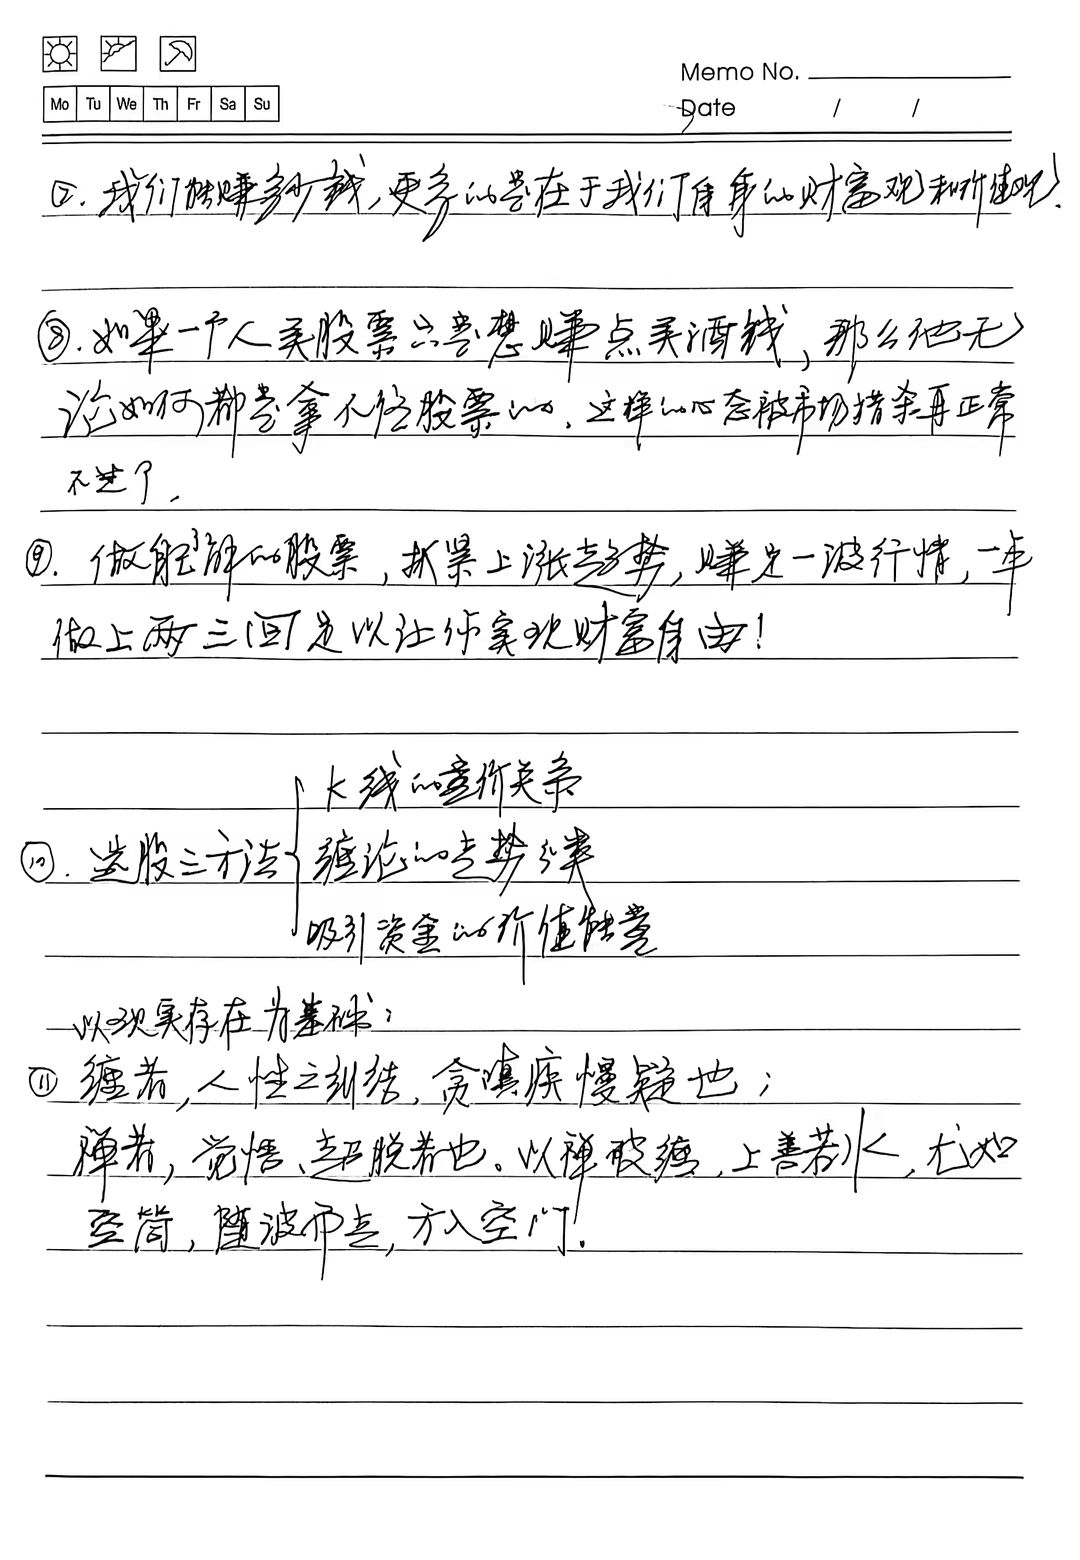 Memo No.
Mo Tu We Th Fr Sa Su
Date / /
⑦. 我们能赚多少钱,更多的是在于我们自身的财富观和价值观.
⑧. 如果一个人买股票只是想赚点买酒钱,那么他无
论如何都是拿不住股票的.这样的心态被市场猎杀再正常
不过了,
⑨. 做能理解的股票,抓紧上涨趋势,赚足一波行情,一年
做上两三回足以让你实现财富自由!
K线的量价关系
⑩. 选股三方法 缠论的走势分类
吸引资金的价值能量
以现实存在为基础:
⑪ 缠者,人性之纠结,贪嗔疾慢疑也;
禅者,觉悟、超脱者也。以禅破缠,上善若水,尤如
空筒,随波而走,方入空门.